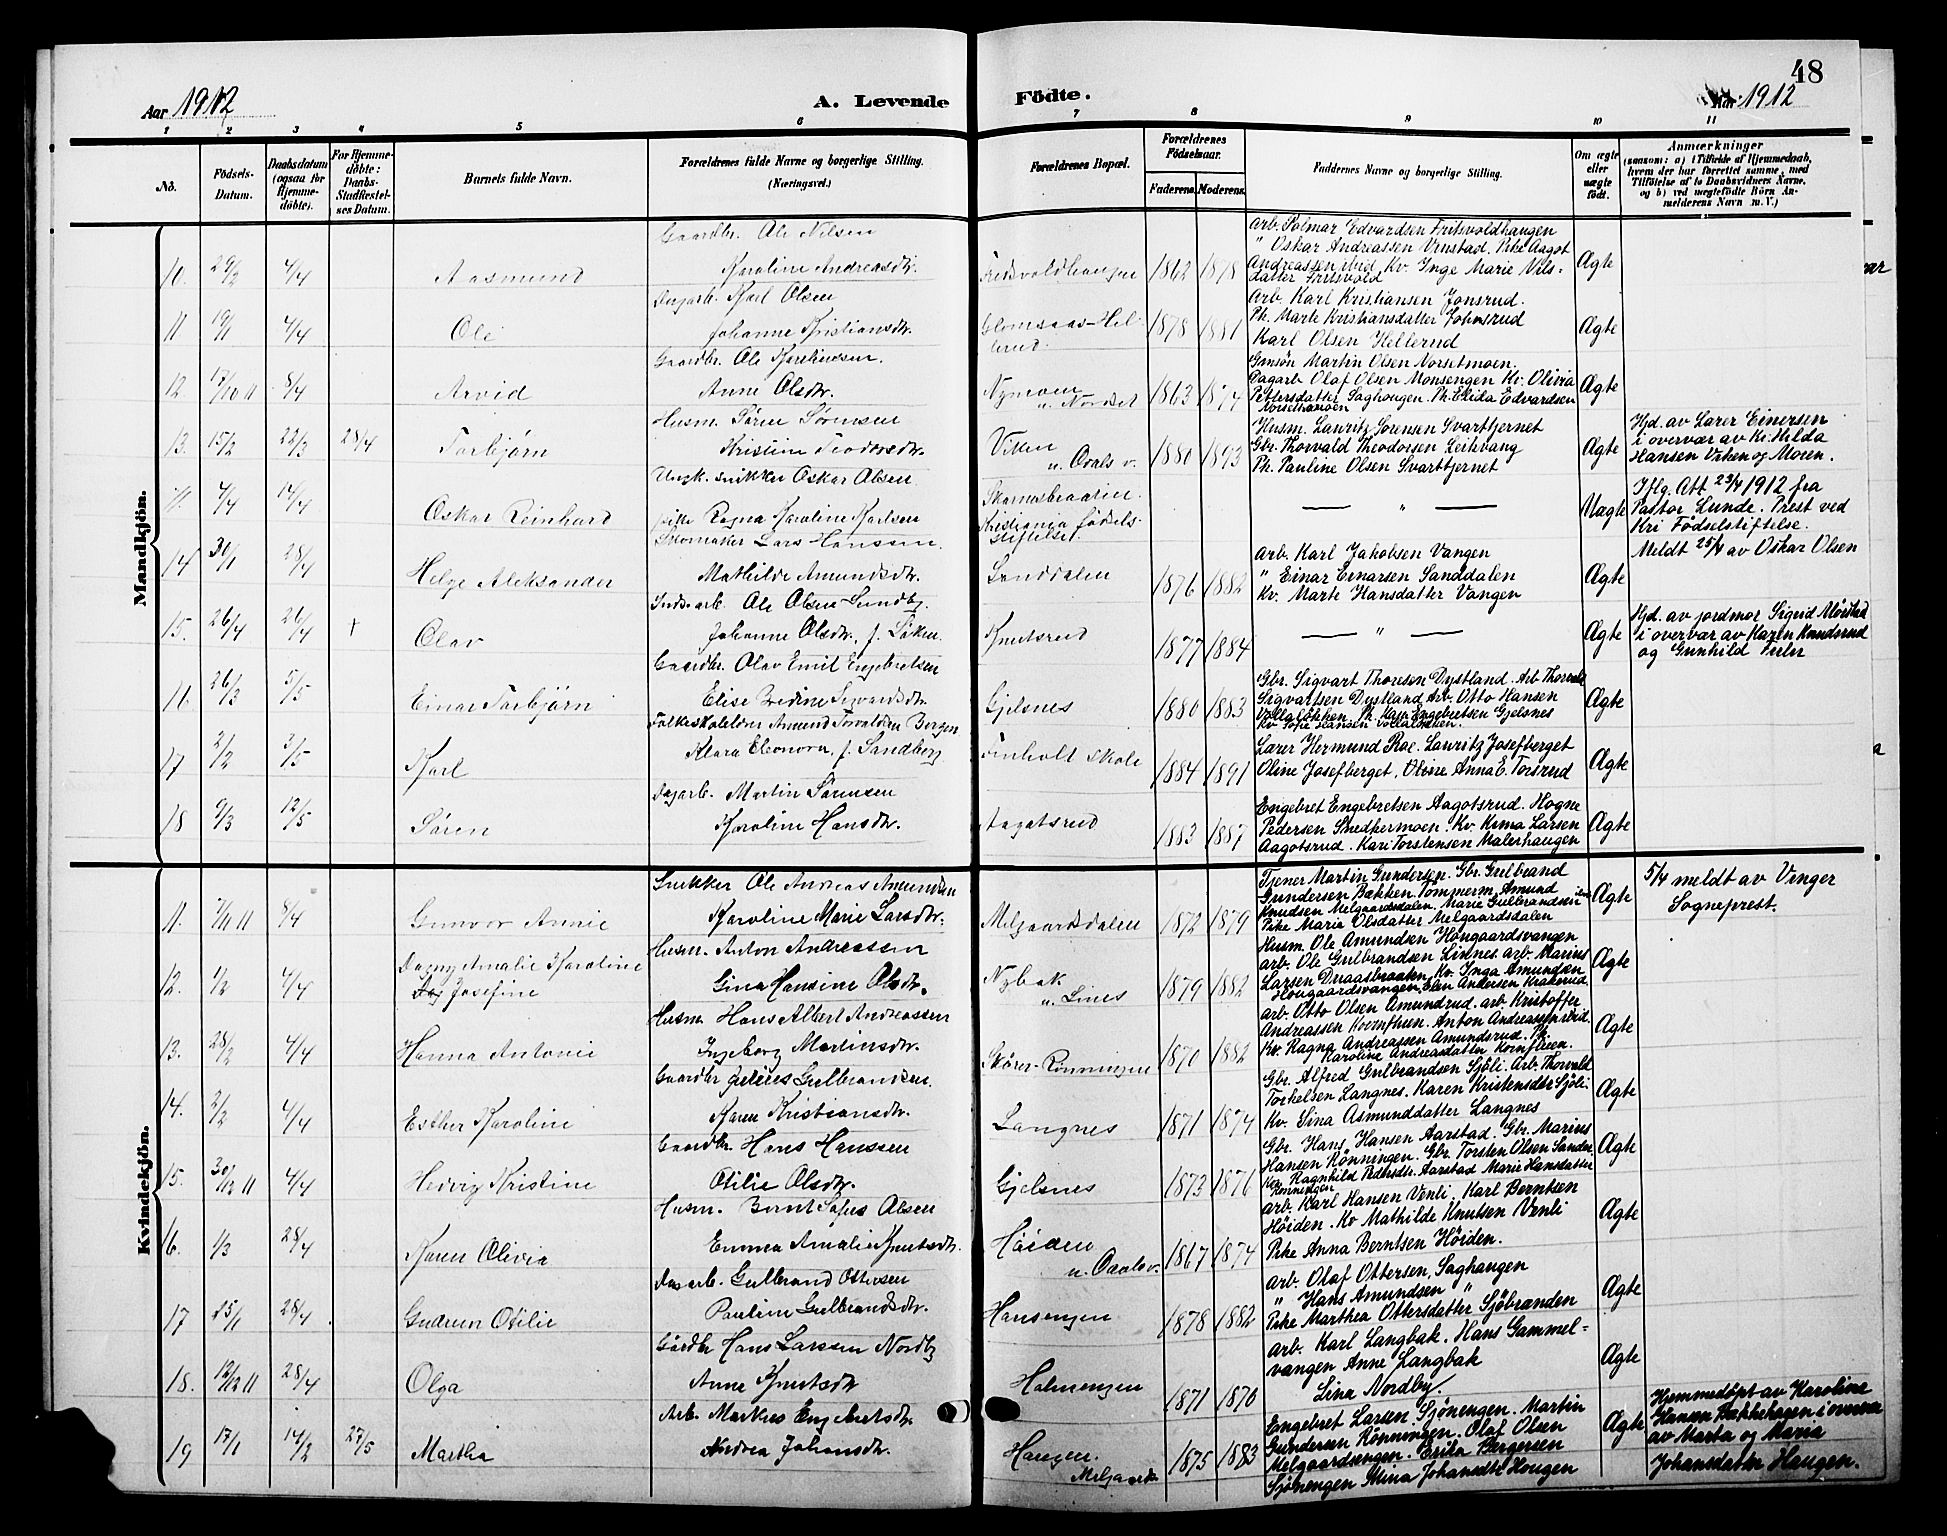 48
Aar 1912
A. Levende
Födte.
Aar 1912
1 2 3 4 5 6 7 8 9 10 11
No.
Födsels-
Datum.
Daabsdatum
(ogsaa for
Hjemme-
döbte).
For Hjemme-
döbte:
Daabs-
Stadfæstel-
ses Datum.
Barnets fulde Navn.
Forældrenes fulde Navne og borgerlige Stilling.
(Næringsvei.)
Forældrenes Bopæl.
Forældrenes
Födselsaar.
Faderens. Moderens.
Faddernes Navne og borgerlige Stilling.
Om ægte
eller
uægte
födt.
Anmærkninger
(saasom: a) i Tilfælde af Hjemmedaab,
hvem der har forrettet samme, med
Tilföielse af to Daabsvidners Navne,
og b) ved uægtefödte Börn An-
melderens Navn m. V.)
Mandkjön.
10. 29/2 4/4 Aasmund
Gaardbr. Ole Nilsen
Karoline Andreasdtr.
1862 1878
Arb. Holmar Edvardsen Fritsvoldhaugen
" Oskar Andreassen Urustad. Pike Aagot
Andreassen ibid. Kv. Inge Marie Nils-
datter Fritsvold
Ægte
11 19/1 4/4 Ole
Dagarb. Karl Olsen
Johanne Kristiansdtr.
Glomsaas-Hel-
lerud.
1878 1881
Arb. Karl Kristiansen Jonsrud.
Ph. Marte Kristiansdatter Johnsrud
Karl Olsen Hellerud
Ægte
12 17/10 11 8/4 Arvid
Gaardbr. Ole Karelinussen.
Anne Olsdtr.
Nymoen
u. Nordset
1863 1874
Gmsön Martin Olsen Norsetmoen.
Dagarb Olaf Olsen Monsengen Kv. Olivia
Pettersdatter Saghougen. Ph. Elida Edvardsen
Norsethamoen
Ægte
13. 15/2 22/3 28/4 Torbjørn
Husm. Søren Sørensen
Kristine Teodorsdtr.
Viken
u. Ovals v.
1880 1893
Husm. Lauritz Sörensen Svarttjernet
Gbr. Thorvald Theodorsen Leikvang
Ph. Pauline Olsen Svarttjernet
Ægte
Hjd. av Lærer Einersen
i overvær av Kr. Hilda
Hansen Viken og Moren.
4/4 14/4 Oskar Reinhard
Ungk. snikker Oskar Olsen
pike Ragna Karoline Karlsen
Skarnesbraaten.
Kristiania födsels-
stiftelse.
— " —
Uægte
Iflg. Att 23/4 1912 fra
Pastor Lunde. Prest ved
Kri Födselstiftelse.
Meldt 25/4 av Oskar Olsen
14 30/1 28/4 Helge Aleksander
Skomaker Lars Hanssen
Mathilde Amundsdtr.
Sanddalen
1876 1882
Arb. Karl Jakobsen Vangen
" Einar Einarsen Sanddalen
Kv. Marte Hansdatter Vangen
Ægte
15. 26/4 26/4 + Olav
Indsarb. Ole Olsen Lundby.
Johanne Olsdtr. f. Løken
Knutsrud
1877 1884
— " —
Ægte
Hjd. av jordmor Sigrid Mörstad
i overvær av Karen Knudsrud
og Gunhild
16 26/3 5/5 Einar Torbjørn
Gaardbr. Olav Emil Engebretsen
Elise Bredine Sigvardsdtr.
Gjelsnes
1880 1883
Gbr. Sigvart Thoresen Dystland. Arb Thorvald
Sigvartsen Dystland Arb. Otto Hansen
Vollalökken. Ph. Karen Engebretsen Gjelsnes
Kv. Sofie Hansen Vollalökken
Ægte
17 2/2 3/5 Karl
Folkeskolelærer Amund Torvaldsen Bergen
Klara Eleonora, f. Sandberg
Finholt Skole
1884 1891
Lærer Hermund Roe. Lauritz Josefberget
Oline Josefberget. Oline Anna E. Torsrud
Ægte
18 9/3 12/5 Søren
Dagarb. Martin Sørensen
Karoline Hansdtr.
Aagotsrud
1883 1887
Engebret Engebretsen Aagotsrud. Hogne
Pedersen Snedkermoen. Kv. Kima Larsen
Aagotsrud. Kari Torstensen Malerhaugen
Ægte
Kvindekjön.
11. 7/11 11 8/4 Gunvor Annie
Snikker Ole Andreas Amundsen
Karoline Marie Larsdtr.
Melgaardsdalen
1872 1879
Tjener Martin Gundersen. Gbr. Gulbrand
Gundersen Bakken Tömmerm. Amund
Knudsen Melgaardsdalen. Marie Gulbrandsen
Pike Maria Olsdatter Melgaardsdalen
Ægte
5/4 meldt av Vinger
Sogneprest.
12. 1/2 4/4 Dagny Amalie Karoline
Josefine
Husm. Anton Andreassen
Gina Hansine Olsdtr.
Nybak
u. Lines
1879 1882
Husm. Ole Amundsen Hougaardsvangen
Arb. Ole Gulbrandsen Lindnes. Arb. Marius
Larsen Draasbraaten Kv. Inga Amundsen
Hougaardsvangen. Elen Andersen Krakerud
Ægte
13. 28/2 4/4 Hanna Antonie
Husm. Hans Albert Andreassen
Ingeborg Martinsdtr.
Skårer-Rønningen
1870 1882
Arb. Otto Olsen Amundrud. Arb Kristoffer
Andreassen Kvernfluen. Anton Andreassen ibid.
Kv. Ragna Andreassen Amundsrud. Ph.
Karoline Andreasdatter Kornfluen.
Ægte
14. 2/2 4/4 Esther Karoline
Gaardbr Julius Gulbrandsen.
Karen Kristiansdtr.
Langnes
1871 1874
Gbr. Alfred Gulbrandsen Sjöli. Arb. Thorvald
Torkelsen Langnes. Karen Kristensdtr Sjöli.
Kv. Lina Asmunddatter Langnes
Ægte
15. 30/12 11 4/4 Hedvig Kristine
Gaardbr. Hans Hanssen
Otilie Olsdtr.
Gjelsnes
1873 1876
Gbr. Hans Hansen Aarstad. Gbr. Marius
Hansen Rönningen. Gbr Torsten Olsen Sander
Kv. Ragnhild Pedersdtr. Aarstad Marie Hansdatter
Rönningen
Ægte
16. 1/3 28/4 Karen Olivia
Husm. Bernt Tofus Olsen
Emma Amalie Knutsdtr.
Høiden
u. Ovals v.
1867 1874
Arb. Karl Hansen Venli. Karl Berntsen
Höiden. Kv Mathilde Knutsen Venli
Pike Anna Berntsen Höiden.
Ægte
17 25/1 28/4 Gudrun Otilie
Dagarb. Gulbrand Ottersen
Pauline Gulbrandsdtr.
Hansengen
1878 1882
Arb. Olaf Ottersen, Saghaugen
" Hans Amundsen "
Pike Marthea Ottersdatter Sjöbranden
Ægte
18. 12/12 11 28/4 Olga
Gårdbr Hans Larssen Nordby
Anne Knutsdtr
Holmengen
1871 1870
Arb. Karl Langbak. Hans Gammel-
vangen Anne Langbak
Lina Nordby.
Ægte
19 17/1 14/2 27/5 Martha
Arb. Markus Engebretsdtr.
Andrea Johansdtr.
Haugen.
Melgaards
1875 1883
Engebret Larsen. Sjönengen. Martin
Gundersen Rönningen. Olaf Olsen
Melgaardsengen. Erika Bergersen
Sjönengen Stina Johansdtr Hougen
Ægte
Hjemmedöpt av Karoline
Hansen Bækkehagen i overvær
av Marta og Maria
Johansdatter Haugen.